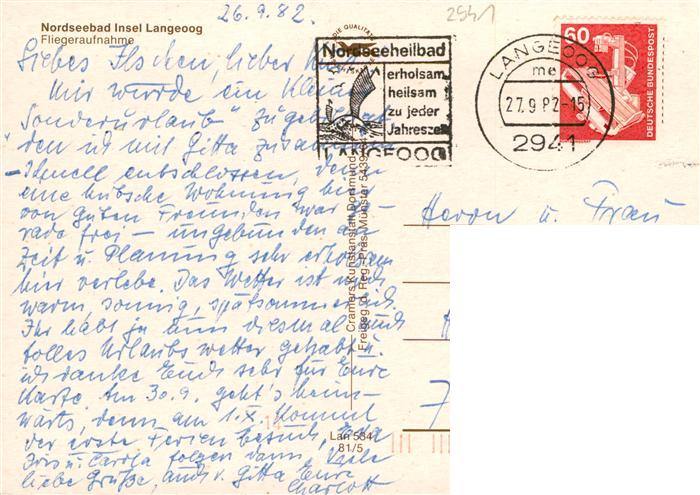 Nordseebad Insel Langeoog
Fliegeraufnahme
26.9.82.
2941
Liebes Ilschen, lieber
Mir wurde ein klein
"Sonderurlaub" zugebilligt
den ich mit Gitta zusammen
- schnell entschlossen, denn
eine hübsche Wohnung
von guten Freunden war
rade frei - ungebunden an
Zeit u. Planung sehr erholsam
hier verlebe. Das Wetter ist noch
warm, sonnig, spätsommerlich.
Ihr habt ja nun diesmal auch
tolles Urlaubswetter gehabt u.
ich danke Euch sehr für Eure
Karte. Am 30.9. geht's heim-
wärts, denn am 1.X. kommt
der erste Ferienbesuch,
Iris u. Carola folgen dann. Viele
liebe Grüße, auch v. Gitta Eure
Charlott
Nordseeheilbad
erholsam
heilsam
zu jeder
Jahreszeit
LANGEOOG
LANGEOOG
me
27.9.82-15
2941
60
DEUTSCHE BUNDESPOST
Herrn u. Frau
Cramers Kunstanstalt Dortmund
Freigeg. d. Reg.-Präs. Münster 5439
Lan 584
81/5